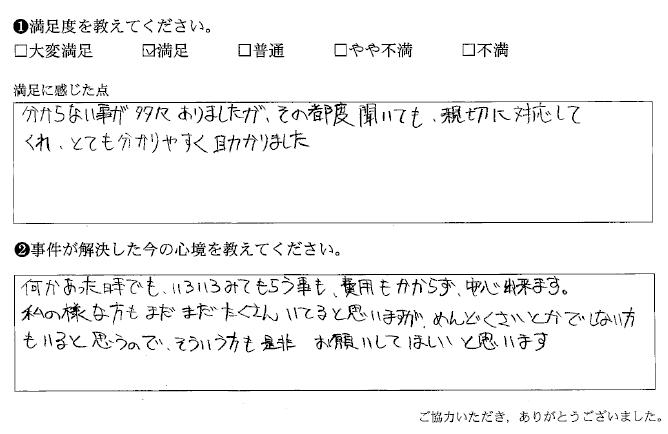 ❶満足度を教えてください。
□大変満足 ☑満足 □普通 □やや不満 □不満
満足に感じた点
分からない事が多々ありましたが、その都度聞いても、親切に対応して
くれ、とても分かりやすく助かりました
❷事件が解決した今の心境を教えてください。
何かあった時でも、いろいろみてもらう事も、費用もかからず、安心出来ます。
私の様な方もまだまだたくさんいてると思いますが、めんどくさいとかでしない方
もいると思うので、そういう方も是非 お願いしてほしいと思います
ご協力いただき、ありがとうございました。